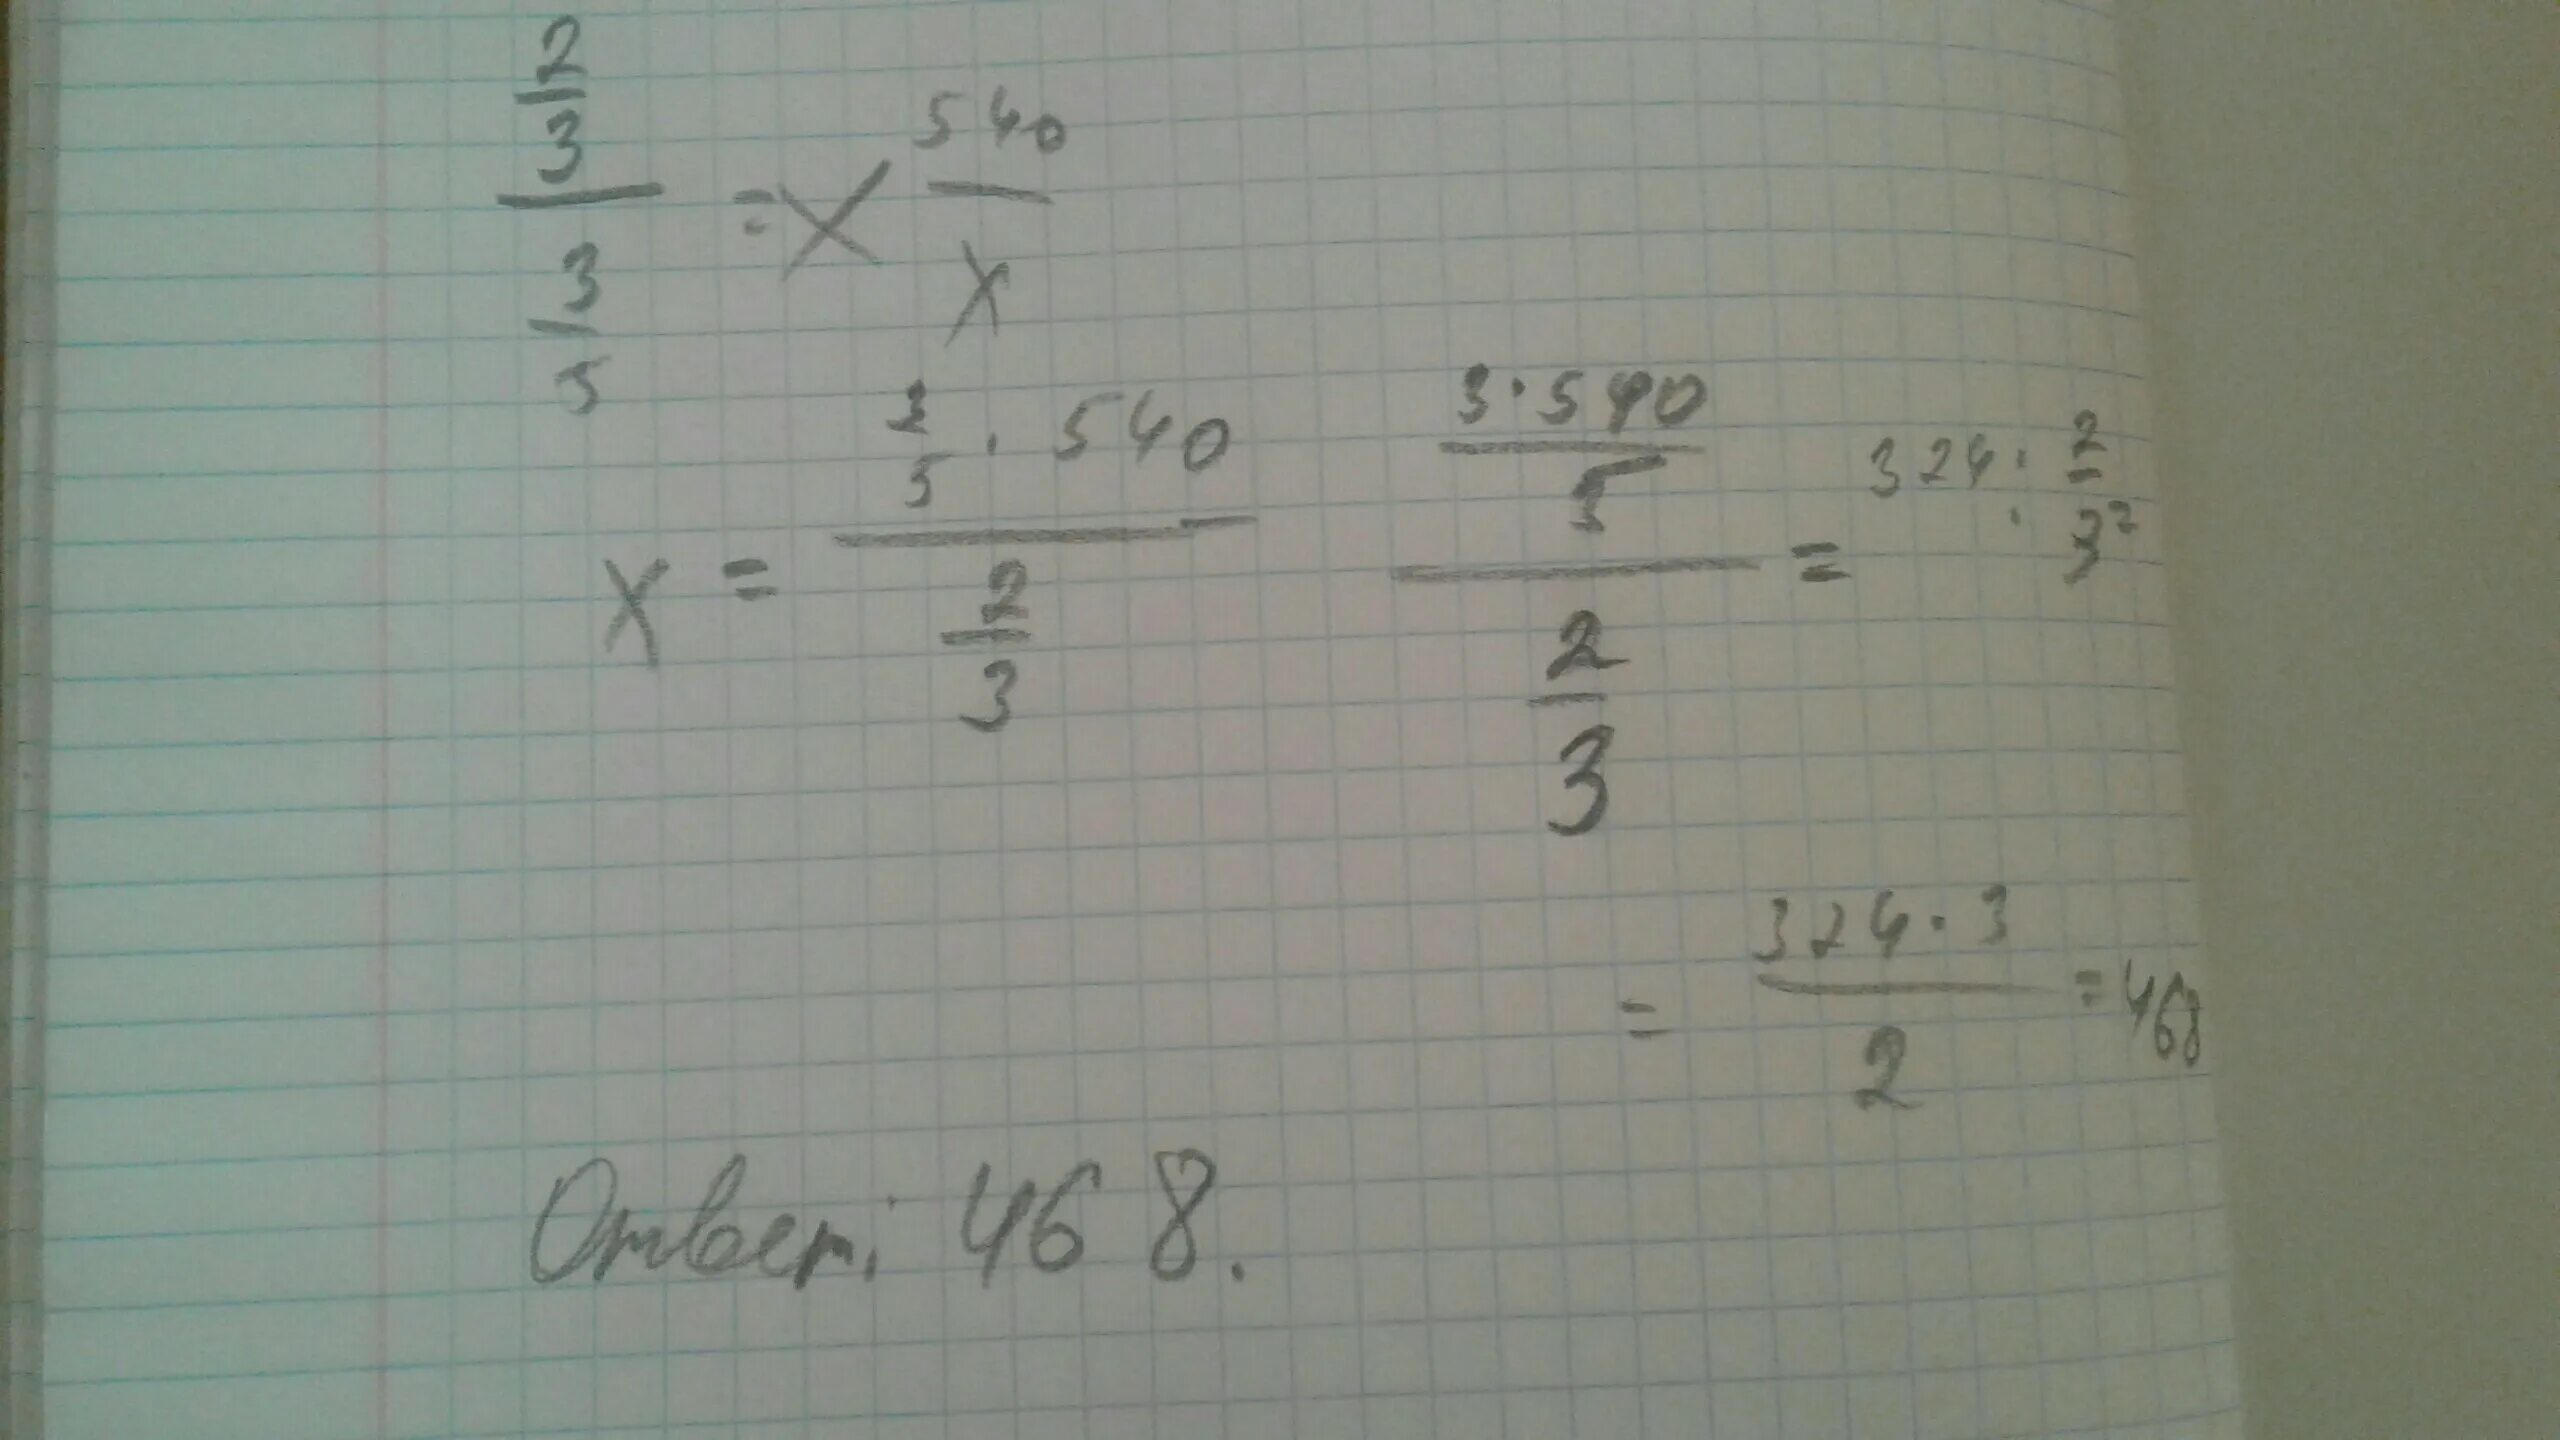 2/3 / 3/5 = X 540/X
X = 3/5 · 540 / 2/3   3·540/5 / 2/3 = 324 : 2/3
= 324·3/2 = 468
Ответ: 468.